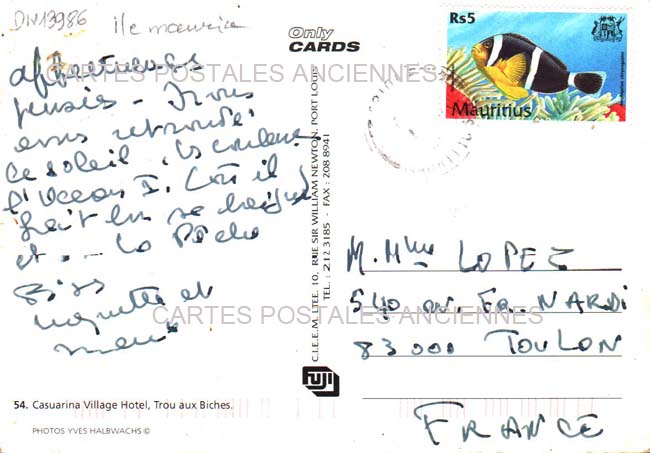 DN13986
ile maurice
affectueuses
pensées - Nous
avons retrouvé
ce soleil. les couleurs
l'Ocean I. où il
fait bon se baigner
et ... la Pêche
Bises
et
CARTES POSTALES ANCIENNES
CARTES POSTALES ANCIENNES
54. Casuarina Village Hotel, Trou aux Biches.
PHOTOS YVES HALBWACHS ©
Only
CARDS
C.I.E.E.M. LTEE. 10, RUE SIR WILLIAM NEWTON, PORT LOUIS
TEL. : 212 3185 - FAX : 208 8941
FUJI
Rs5
Mauritius
M. Mme LOPEZ
540 av. Fr. NARDI
83000 TOULON
FRANCE